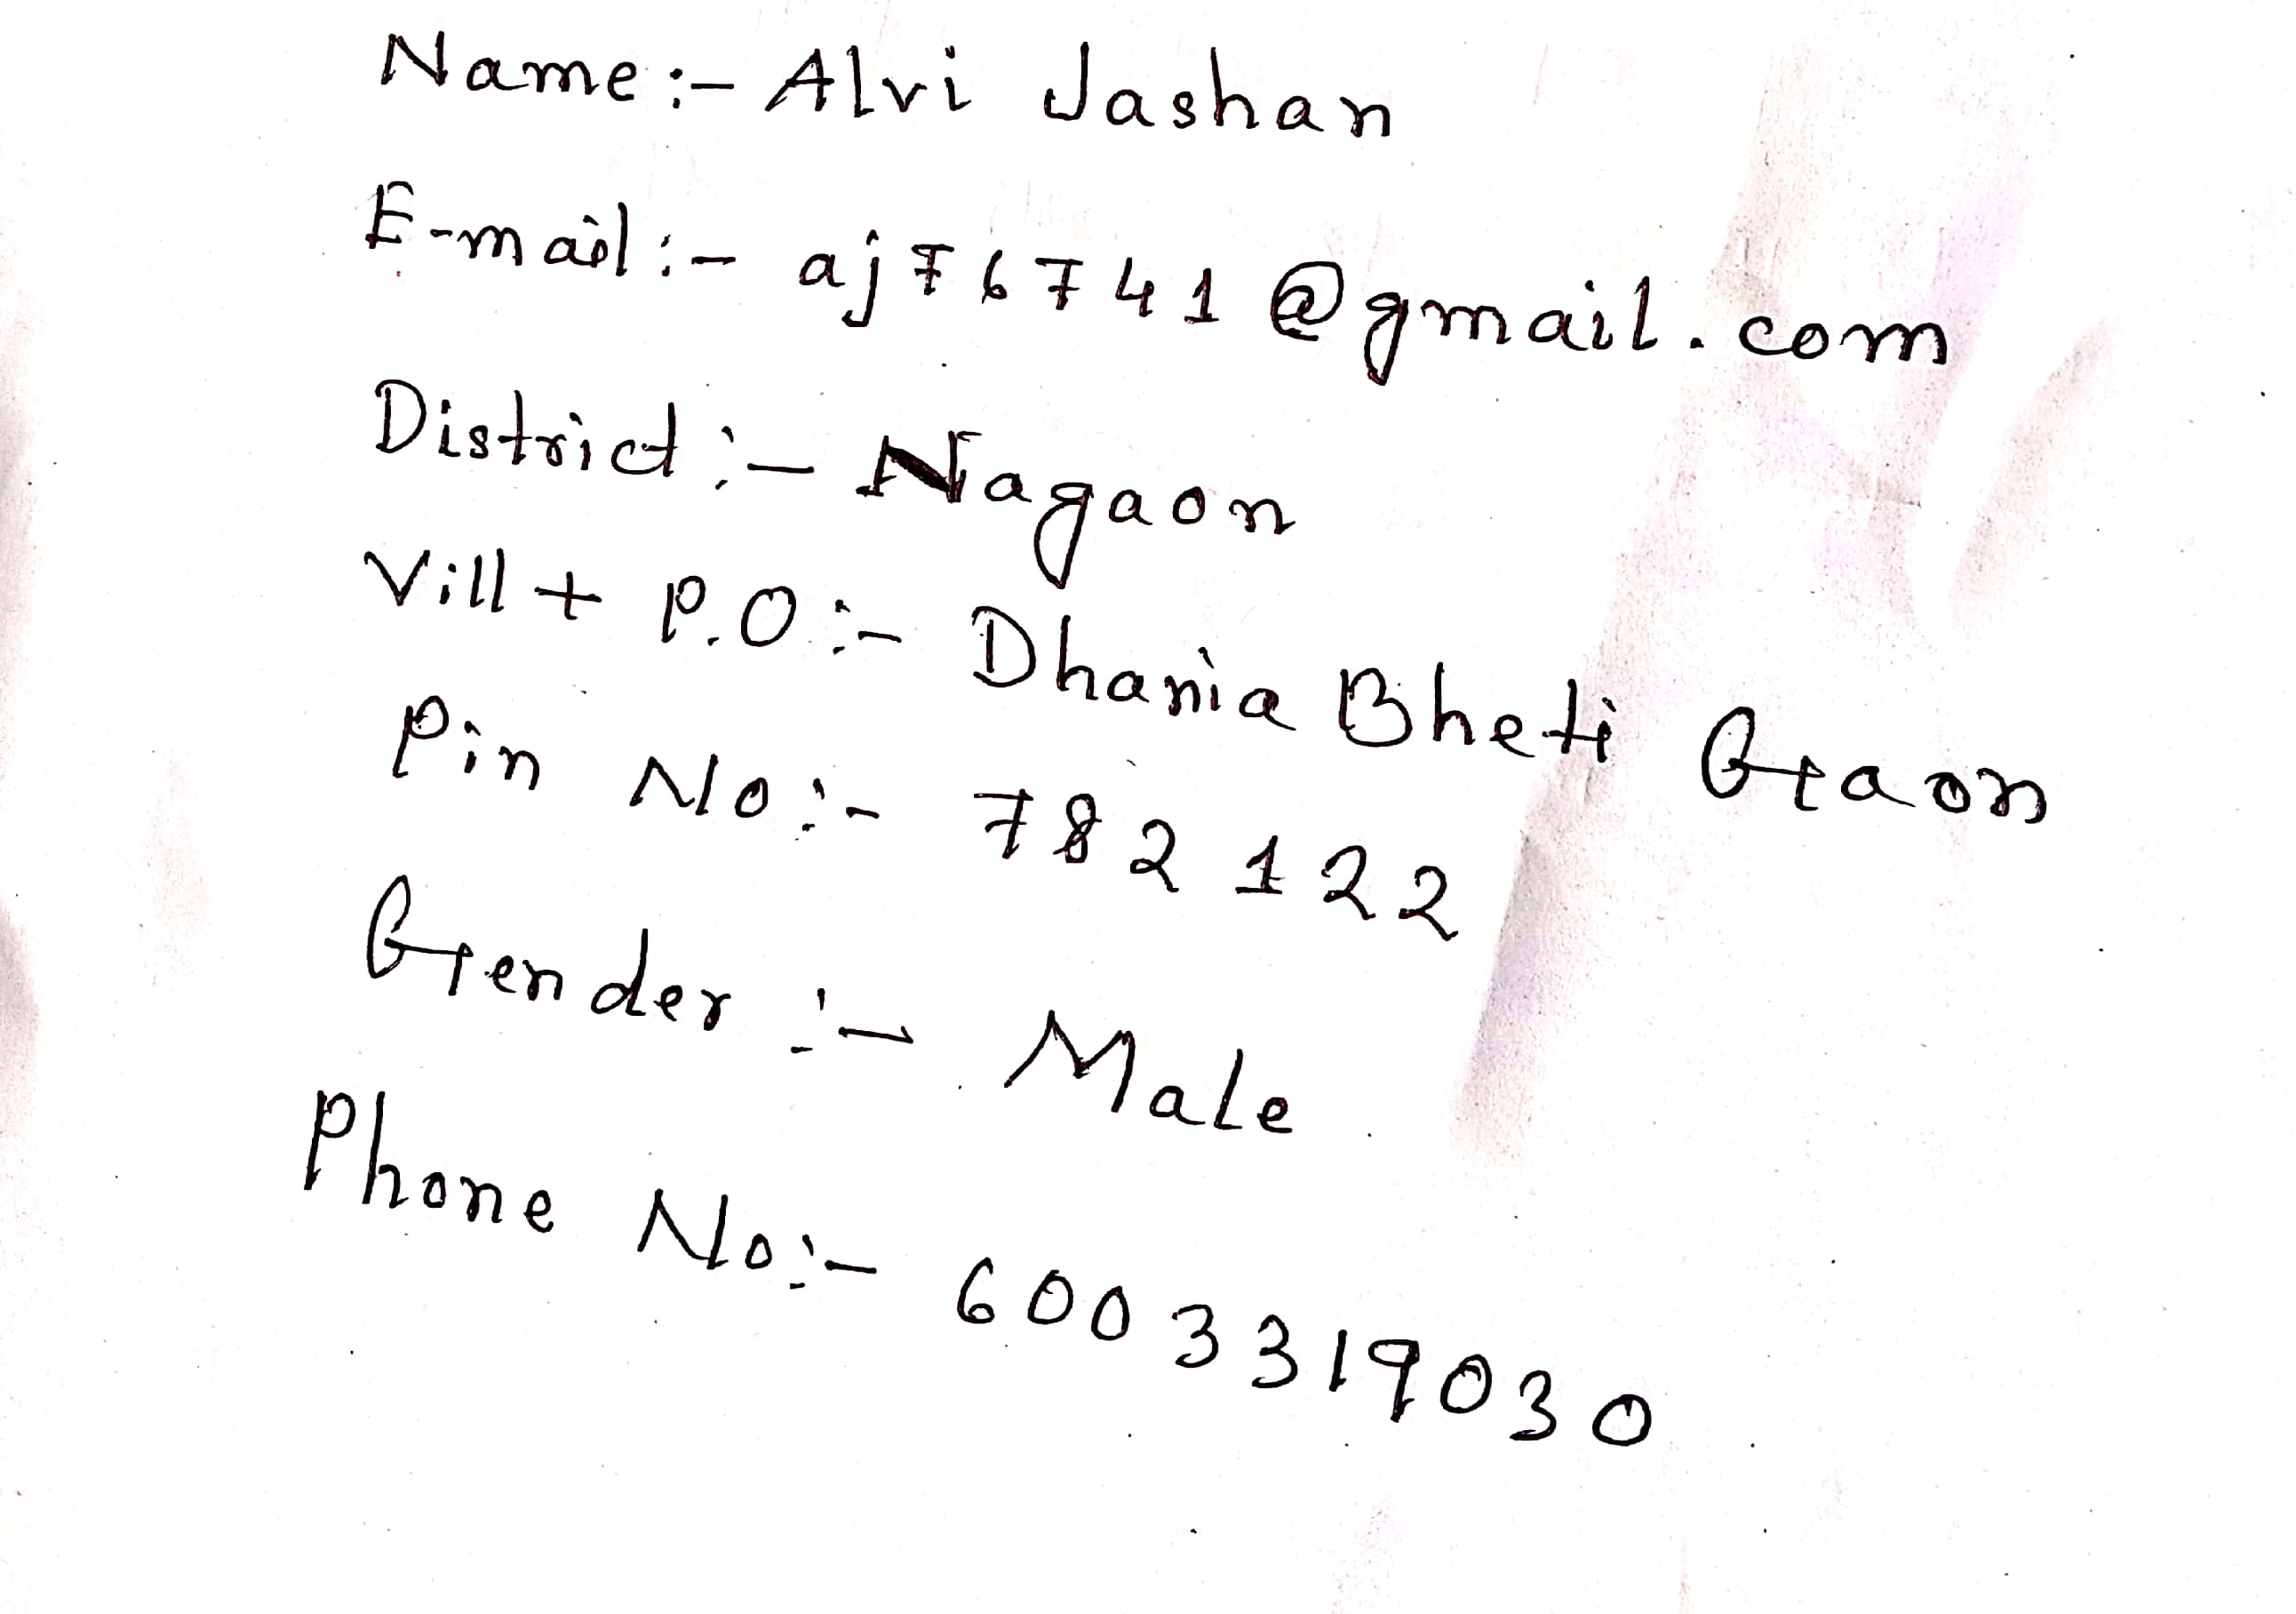 Name:- Alvi Jashan
E-mail:- aj76741@gmail.com
District:- Nagaon
Vill + P.O:- Dhania Bheti Gaon
Pin No:- 782122
Gender:- Male
Phone No:- 6003319030